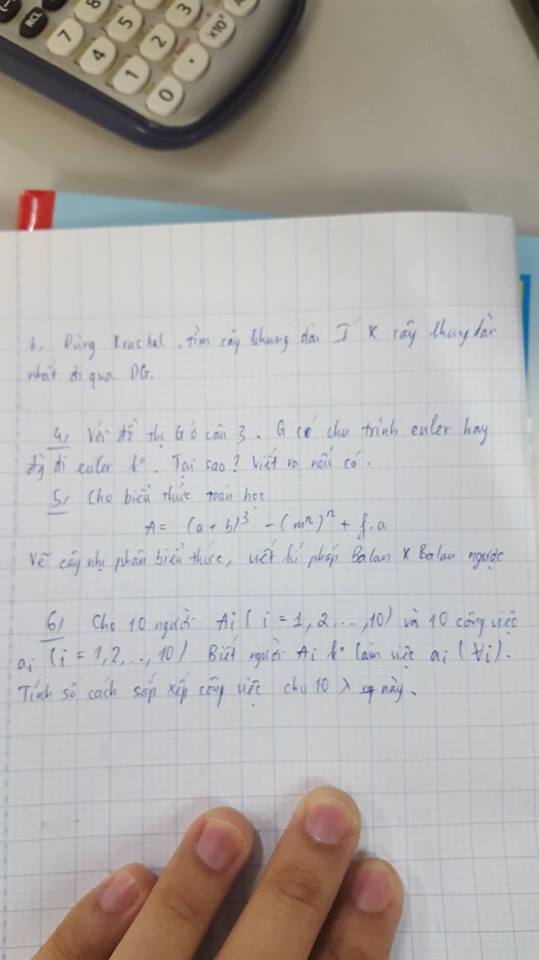 RCL
7
8
4
5
1
2
3
0
.
×10ˣ
h, Dùng Kruskal, tìm cây khung dài I x cây khung dài
nhất đi qua DG.
4/ Với đồ thị G ở câu 3. G có chu trình euler hay
đg đi euler k°. Tại sao? Viết ra nếu có.
5/ Cho biểu thức toán học
A = (a + b)³ - (mⁿ)ⁿ + f.a
Vẽ cây nhị phân biểu thức, viết kí pháp Balan x Balan ngược
6/ Cho 10 người Ai (i = 1,2,...,10) và 10 công việc
ai (i = 1,2,..,10) Biết người Ai k° làm việc ai (∀i).
Tính số cách sắp xếp công việc cho 10 λ này.